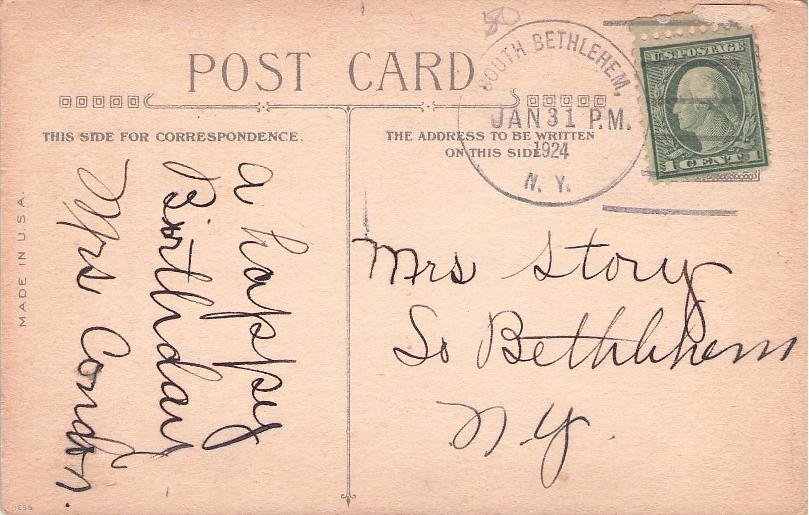 80
POST CARD
SOUTH BETHLEHEM,
JAN 31 P.M.
1924
N. Y.
U.S. POSTAGE
1 CENT 1
THIS SIDE FOR CORRESPONDENCE.
THE ADDRESS TO BE WRITTEN
ON THIS SIDE
a happy
Birthday
Mrs Condon.
Mrs Story
So Bethlehem
N.Y.
MADE IN U.S.A.